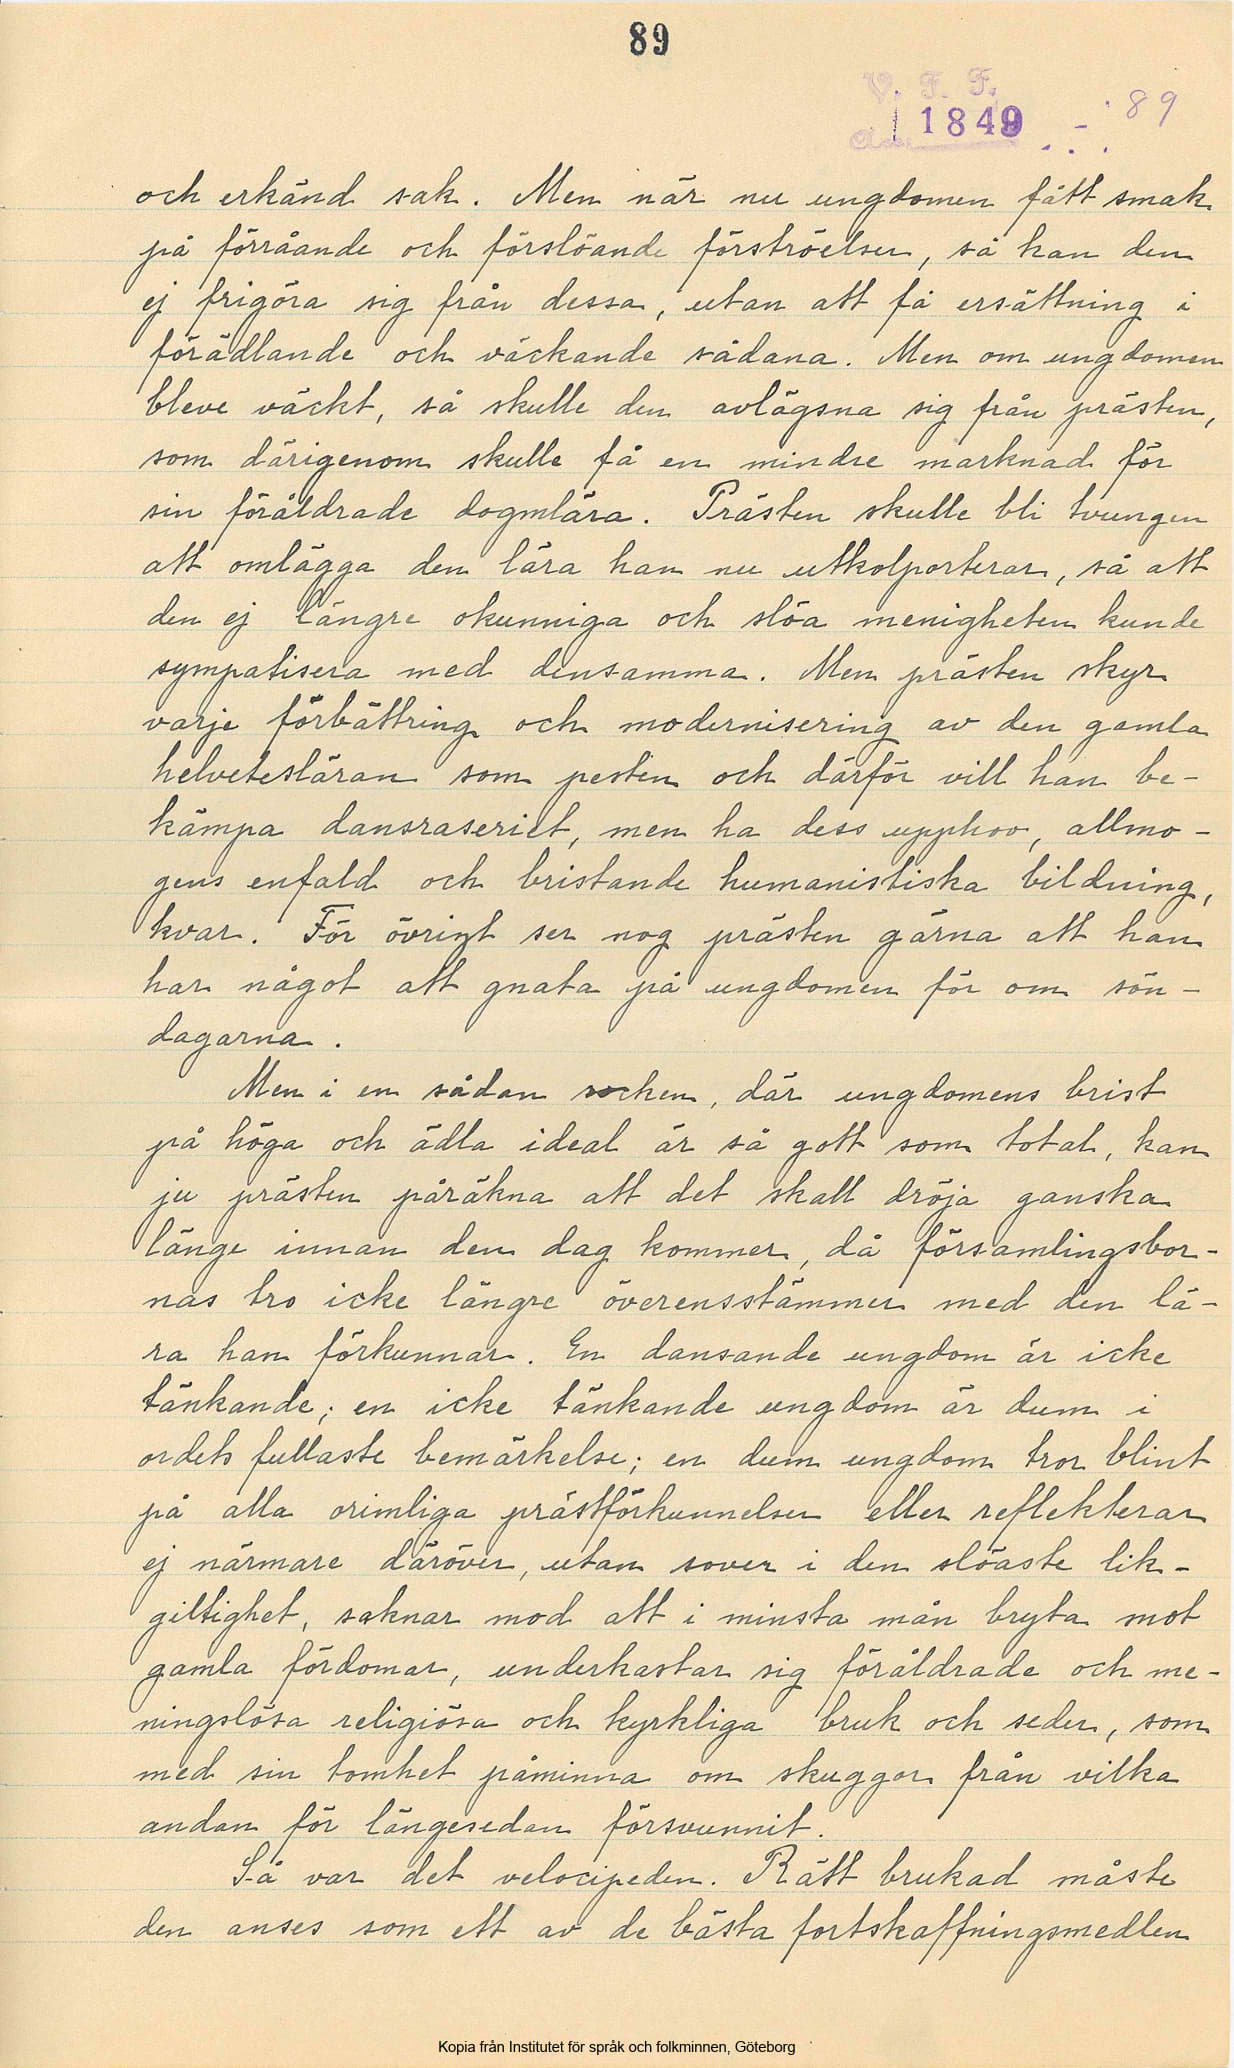 89
V. F. F.
1849 89
och erkänd sak. Men när nu ungdomen fått smak
på förråande och förslöande förströelser, så kan den
ej frigöra sig från dessa, utan att få ersättning i
förädlande och väckande sådana. Men om ungdomen
bleve väckt, så skulle den avlägsna sig från prästen,
som därigenom skulle få en mindre marknad för
sin föråldrade dogmlära. Prästen skulle bli tvungen
att omlägga den lära han nu utkolporterar, så att
den ej längre okunniga och slöa menigheten kunde
sympatisera med densamma. Men prästen skyr
varje förbättring och modernisering av den gamla
helvetesläran som pesten och därför vill han be-
kämpa dansraseriet, men ha dess upphov, allmo-
gens enfald och bristande humanistiska bildning,
kvar. För övrigt ser nog prästen gärna att han
har något att gnata på ungdomen för om sön-
dagarna.
Men i en sådan socken, där ungdomens brist
på höga och ädla ideal är så gott som total, kan
ju prästen påräkna att det skall dröja ganska
länge innan den dag kommer, då församlingsbor-
nas tro icke längre överensstämmer med den lä-
ra han förkunnar. En dansande ungdom är icke
tänkande; en icke tänkande ungdom är dum i
ordets fullaste bemärkelse; en dum ungdom tror blint
på alla orimliga prästförkunnelser eller reflekterar
ej närmare däröver, utan sover i den slöaste lik-
giltighet, saknar mod att i minsta mån bryta mot
gamla fördomar, underkastar sig föråldrade och me-
ningslösa religiösa och kyrkliga bruk och seder, som
med sin tomhet påminna om skuggor från vilka
andan för längesedan försvunnit.
Så var det velocipeden. Rätt brukad måste
den anses som ett av de bästa fortskaffningsmedlen
Kopia från Institutet för språk och folkminnen, Göteborg